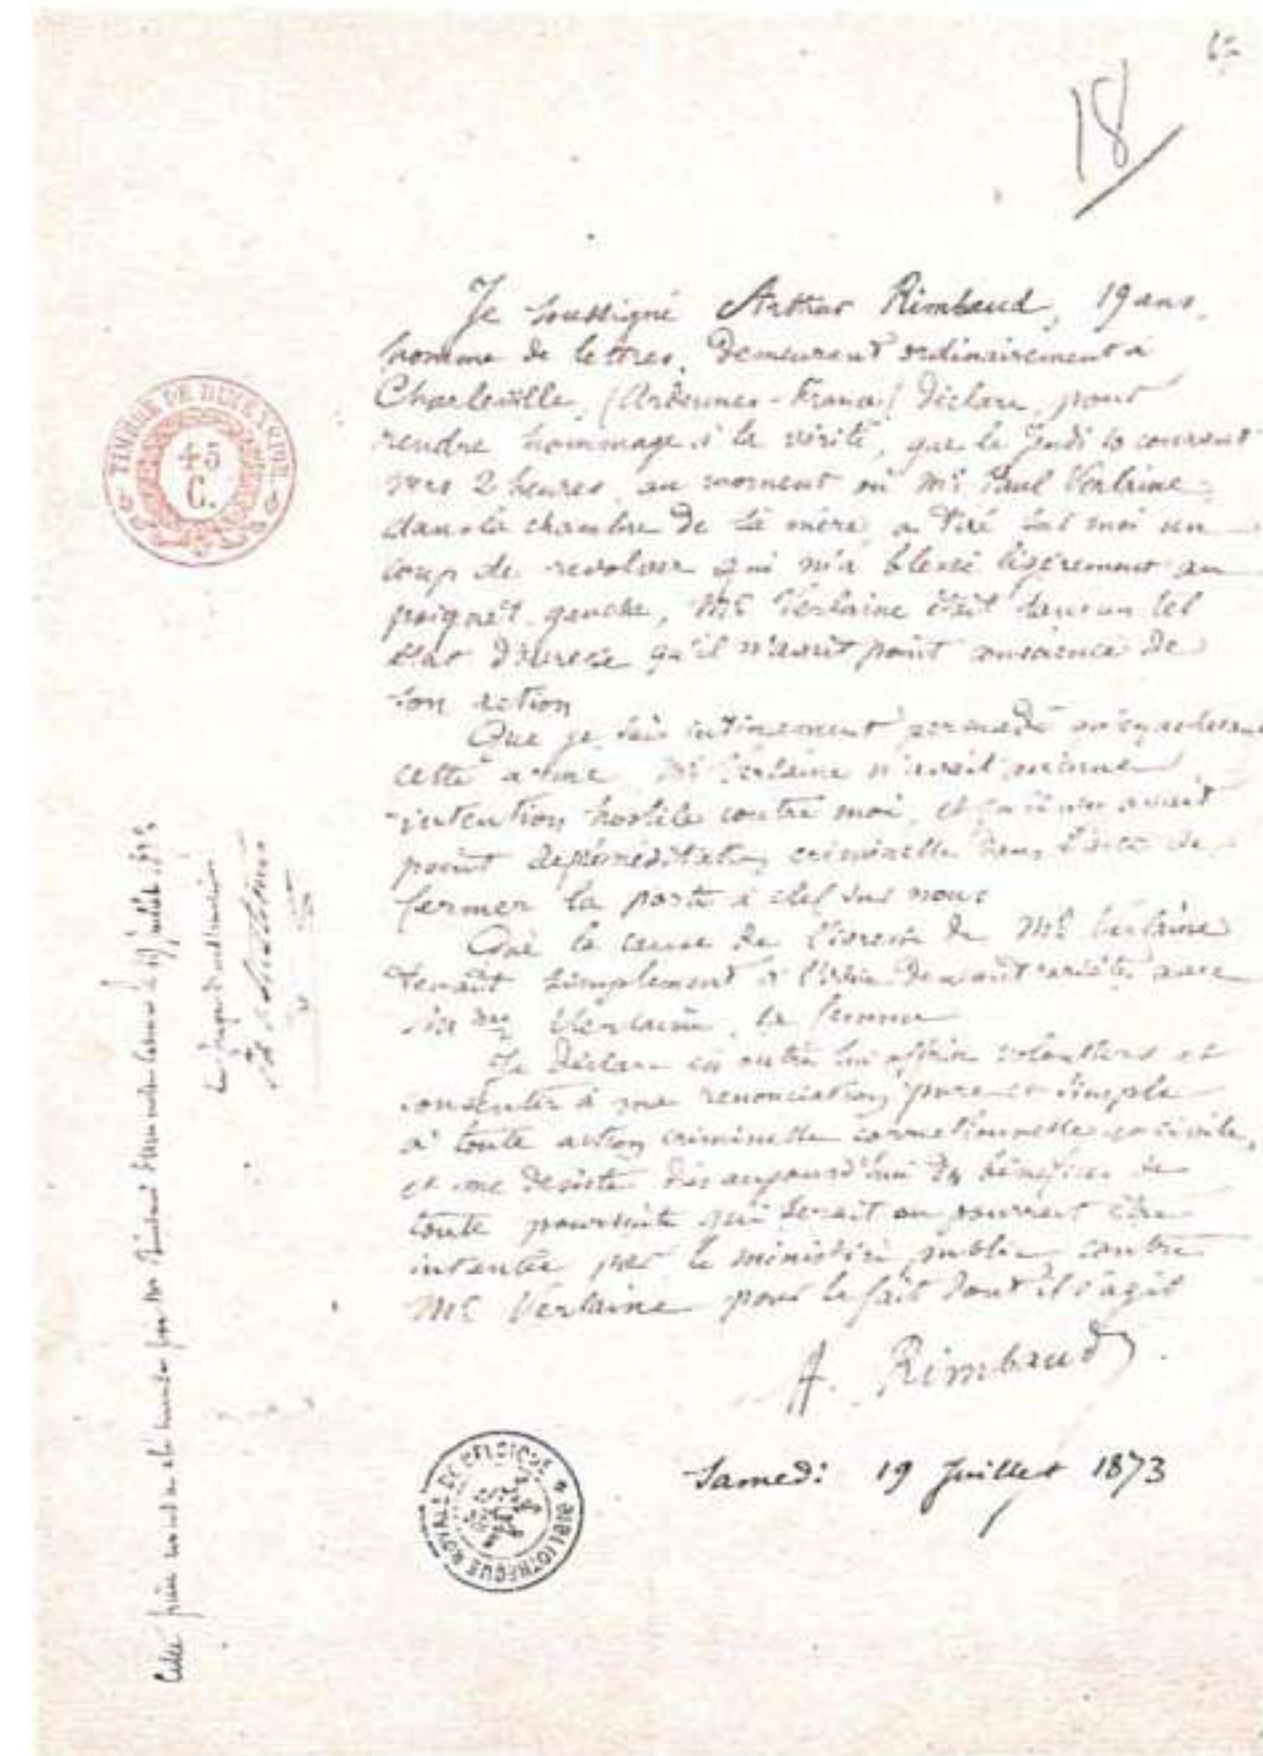 18
Je soussigné Arthur Rimbaud, 19 ans,
homme de lettres, demeurant ordinairement à
Charleville, (Ardennes-France) déclare, pour
rendre hommage à la vérité, que le jeudi 10 courant
vers 2 heures, au moment où Mr Paul Verlaine,
dans la chambre de sa mère, a tiré sur moi un
coup de revolver qui m'a blessé légèrement au
poignet gauche, Mr Verlaine était dans un tel
état d'ivresse qu'il n'avait point conscience de
son action
Que je suis intimement persuadé qu'en achetant
cette arme, Mr Verlaine n'avait aucune
intention hostile contre moi, et qu'il n'y avait
point de préméditation criminelle dans l'acte de
fermer la porte à clef sur nous
Que la cause de l'ivresse de Mr Verlaine
tenait simplement à l'idée de contrariétés avec
Madame Verlaine, sa femme
Je déclare en outre lui offrir volontiers et
consentir à ma renonciation pure et simple
à toute action criminelle correctionnelle et civile,
et me désiste dès aujourd'hui des bénéfices de
toute poursuite qui serait ou pourrait être
intentée par le ministère public contre
Mr Verlaine pour le fait dont il s'agit
A. Rimbaud
Samedi 19 Juillet 1873
TIMBRE DE DIMENSION
45
C.
BIBLIOTHEQUE ROYALE DE BELGIQUE
Le juge d'instruction